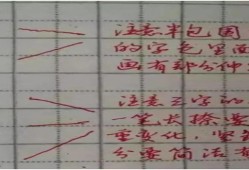 注意半包围
的字色里面
画有部分伸
注意三字的
一笔长撇要
重变化，竖
分要简洁有